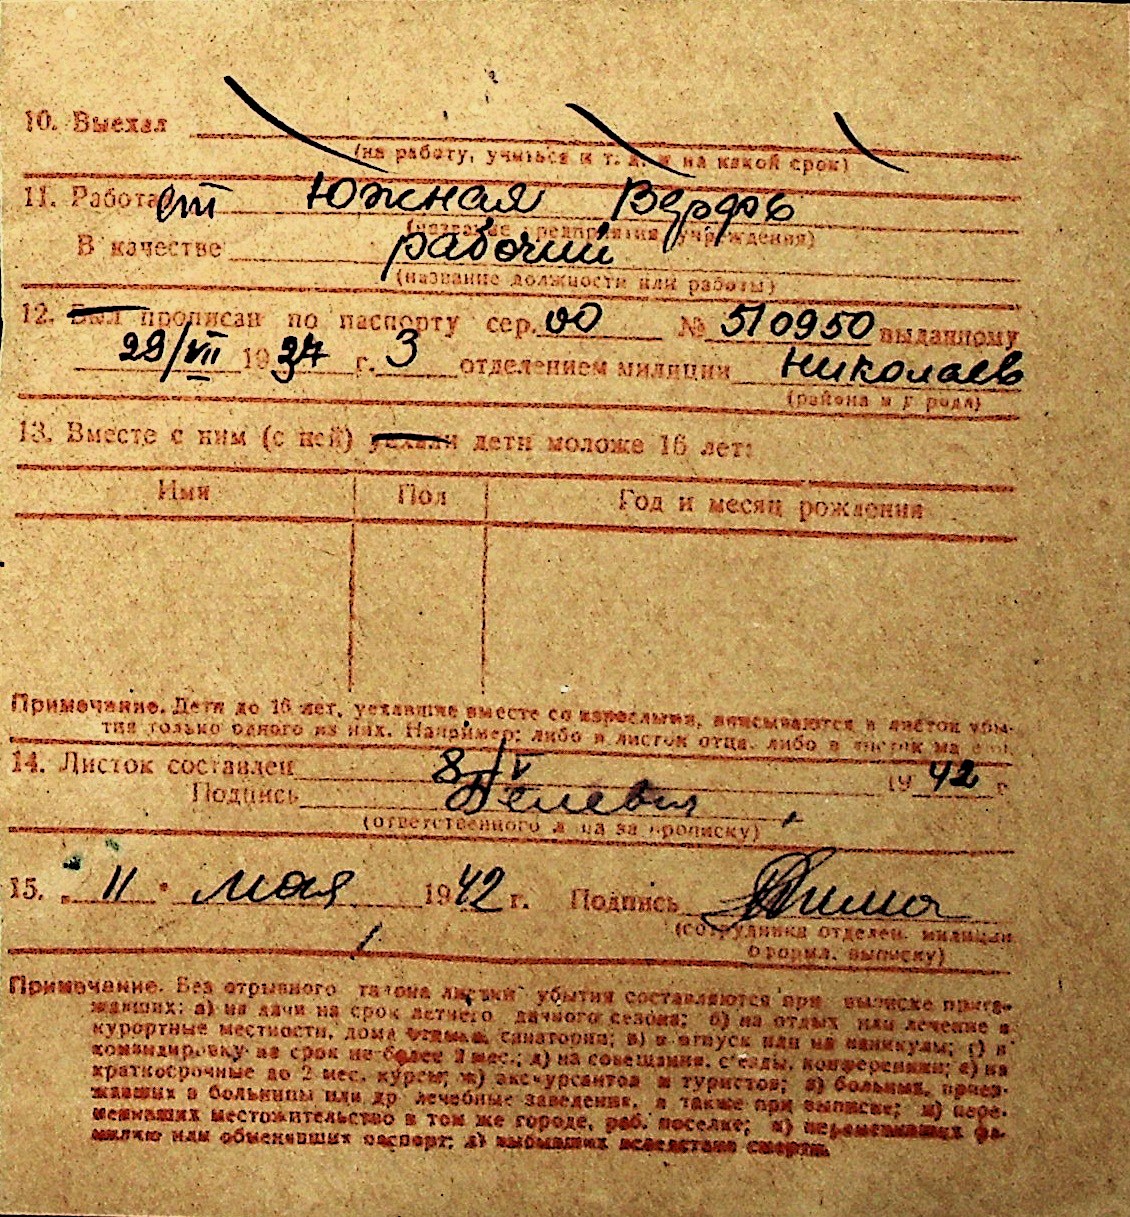 10. Выехал
(на работу, учиться и т. д. и на какой срок)
11. Работает Южная Верфь
(название предприятия учреждения)
В качестве рабочий
(название должности или работы)
12. Был прописан по паспорту сер. № 510950 выданному
29/VII 1937 г. 3 отделением милиции Николаев
(района и города)
13. Вместе с ним (с ней) уехали дети моложе 16 лет:
Имя Пол Год и месяц рождения
Примечание. Дети до 16 лет, уехавшие вместе со взрослыми, вписываются в листок убы-
тия только одного из них. Например: либо в листок отца, либо в листок матери.
14. Листок составлен 8/V 1942 г
Подпись
(ответственного лица за прописку)
15. „ 11 " мая 1942 г. Подпись
(сотрудника отделен. милиции
оформл. выписку)
Примечание. Без отрывного талона листки убытия составляются при выписке приез-
жавших: а) на дачи на срок летнего дачного сезона; б) на отдых или лечение в
курортные местности, дома отдыха, санатории; в) в отпуск или на каникулы; г) в
командировку на срок не более 2 мес.; д) на совещания, с'езды, конференции; е) на
краткосрочные до 2 мес. курсы; ж) экскурсантов и туристов; з) больных, приез-
жавших в больницы или др лечебные заведения, а также при выписке; и) пере-
менивших местожительство в том же городе, раб. поселке; к) переменивших фа-
милию или обменявших паспорт; л) выбывших вследствие смерти.